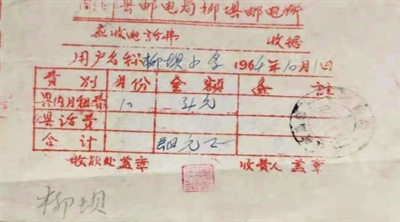 县邮电局柳坝邮电所
应收电话费 收据
用户名称柳坝小学 1964年10月1日
费别 月份 金额 备注
县内月租费 10
县话费
合计 四元
收款处盖章 收费人盖章
柳坝